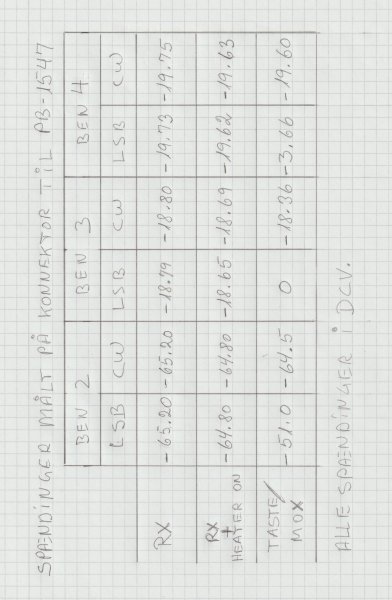 SPÆNDINGER MÅLT PÅ KONNEKTOR TIL PB-1547
BEN 2 BEN 3 BEN 4
LSB CW LSB CW LSB CW
RX -65.20 -65.20 -18.79 -18.80 -19.73 -19.75
RX + HEATER ON -64.80 -64.80 -18.65 -18.69 -19.62 -19.63
TASTE/ MOX -51.0 -64.5 0 -18.36 -3.66 -19.60
ALLE SPÆNDINGER i DCV.